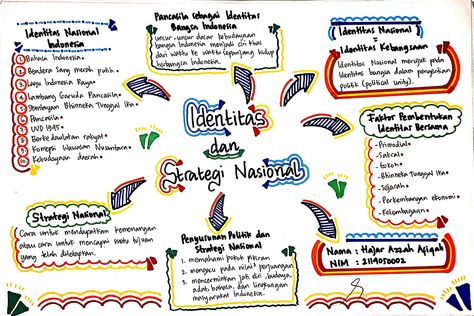 Identitas Nasional
Indonesia
1 Bahasa Indonesia.
2 Bendera Sang merah putih.
3 Lagu Indonesia Raya.
4 Lambang Garuda Pancasila.
5 Semboyan Bhinneka Tunggal Ika.
6 Pancasila.
7 UUD 1945.
8 Berkedaulatan rakyat.
9 Konsepsi Wawasan Nusantara.
10 Kebudayaan daerah.
Pancasila sebagai Identitas
Bangsa Indonesia
unsur-unsur dalam kebudayaan
bangsa Indonesia menjadi ciri khas
dari waktu ke waktu sepanjang hidup
berbangsa Indonesia.
Identitas Nasional
=
Identitas Kebangsaan
Identitas Nasional merujuk pada
identitas bangsa dalam pengertian
politik (political unity).
Identitas
dan
Strategi Nasional
Faktor Pembentukan
Identitas Bersama
- Primodial
- Sakral
- tokoh
- Bhinneka Tunggal Ika
- Sejarah
- Perkembangan ekonomi
- Kelembagaan
Strategi Nasional
Cara untuk mendapatkan kemenangan
atau cara untuk mencapai suatu tujuan
yang telah ditetapkan.
Penyusunan Politik dan
Strategi Nasional
1. memahami pokok pikiran
2. mengacu pada nilai² perjuangan
3. mencerminkan jati diri, budaya,
adat, bahasa, dan lingkungan
masyarakat Indonesia.
Nama : Hajar Azzah Aqiqah
NIM : 2119050002